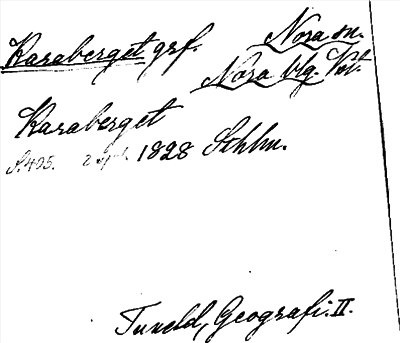 Karaberget grf. Nora sn.
Nora blg. Vstm.
Karaberget
S. 405. 2 uppl. 1828 Sthlm.
Tuneld, Geografi. II.